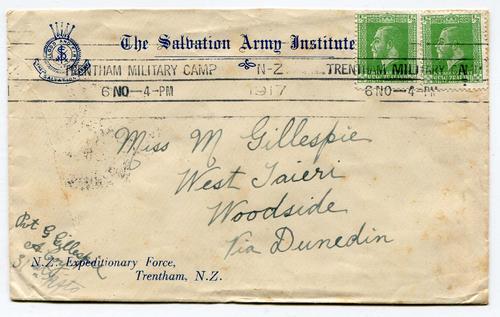 The Salvation Army Institute
TRENTHAM MILITARY CAMP N-Z TRENTHAM MILITARY CA
6 NO – 4-PM 1917 6 NO – 4-PM
Miss M Gillespie
West Taieri
Woodside
Via Dunedin
Pvt G Gillespie
N.Z. Expeditionary Force,
Trentham, N.Z.